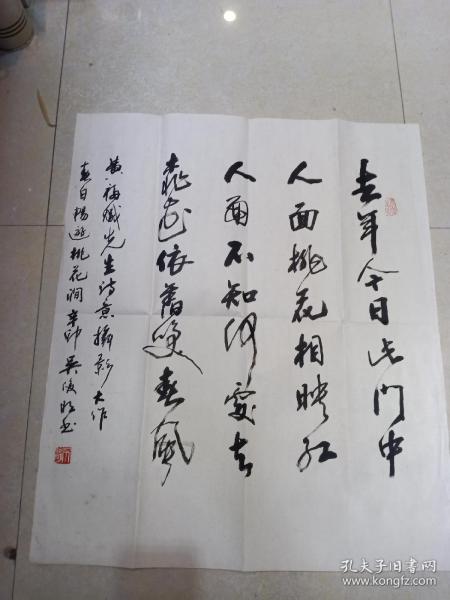 去年今日此门中
人面桃花相映红
人面不知何处去
桃花依旧笑春风
黄福 先生诗意摄影大作
春日 游桃花涧 吴 书
孔夫子旧书网
www.kongfz.com